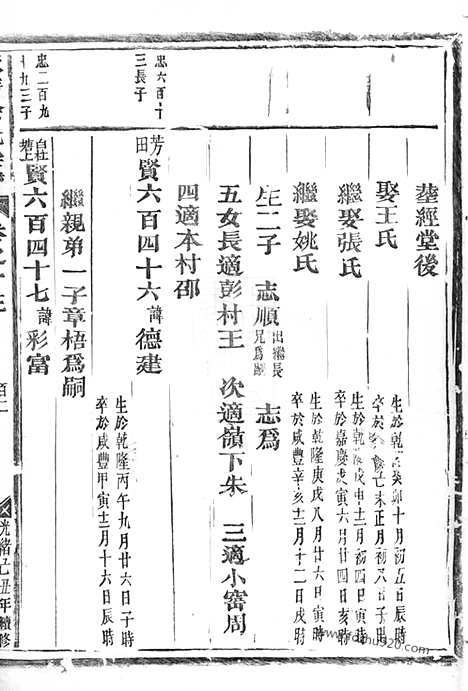 塋經堂後
娶王氏
生於乾隆癸卯十月初五日辰時
卒於 亡未正月初八日子時
繼娶張氏
生於乾隆戊申十二月初四日丑時
卒於嘉慶戊寅六月廿四日亥時
繼娶姚氏
生於乾隆庚戌八月廿六日寅時
卒於咸豐辛亥十二月十二日戌時
生二子 志順 出繼長兄爲嗣 志爲
五女長適彭村王 次適嶺下朱 三適小窑周
四適本村邵
忠六百十三長子
芳田賢六百四十六諱德建
生於乾隆丙午九月廿六日子時
卒於咸豐甲寅十二月十六日辰時
繼親弟一子章梧爲嗣
忠二百九十九三子
自社塘上賢六百四十七諱彩富
百二
光緒乙丑年續修